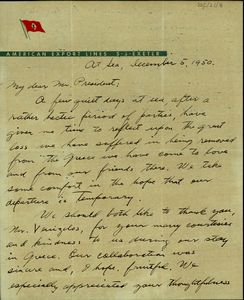 AMERICAN EXPORT LINES - S-S EXETER
At Sea, December 5, 1950.
My dear Mr. President;
A few quiet days at sea, after a
rather hectic period of parties, have
given me time to reflect upon the great
loss we have suffered in being removed
from the Greece we have come to love
and from our friends there. We take
some comfort in the hope that our
departure is temporary.
We should both like to thank you,
Mr. for your many courtesies
and kindness to us during our stay
in Greece. Our collaboration was
sincere and, I hope, fruitful. We
especially appreciated your thoughtfulness